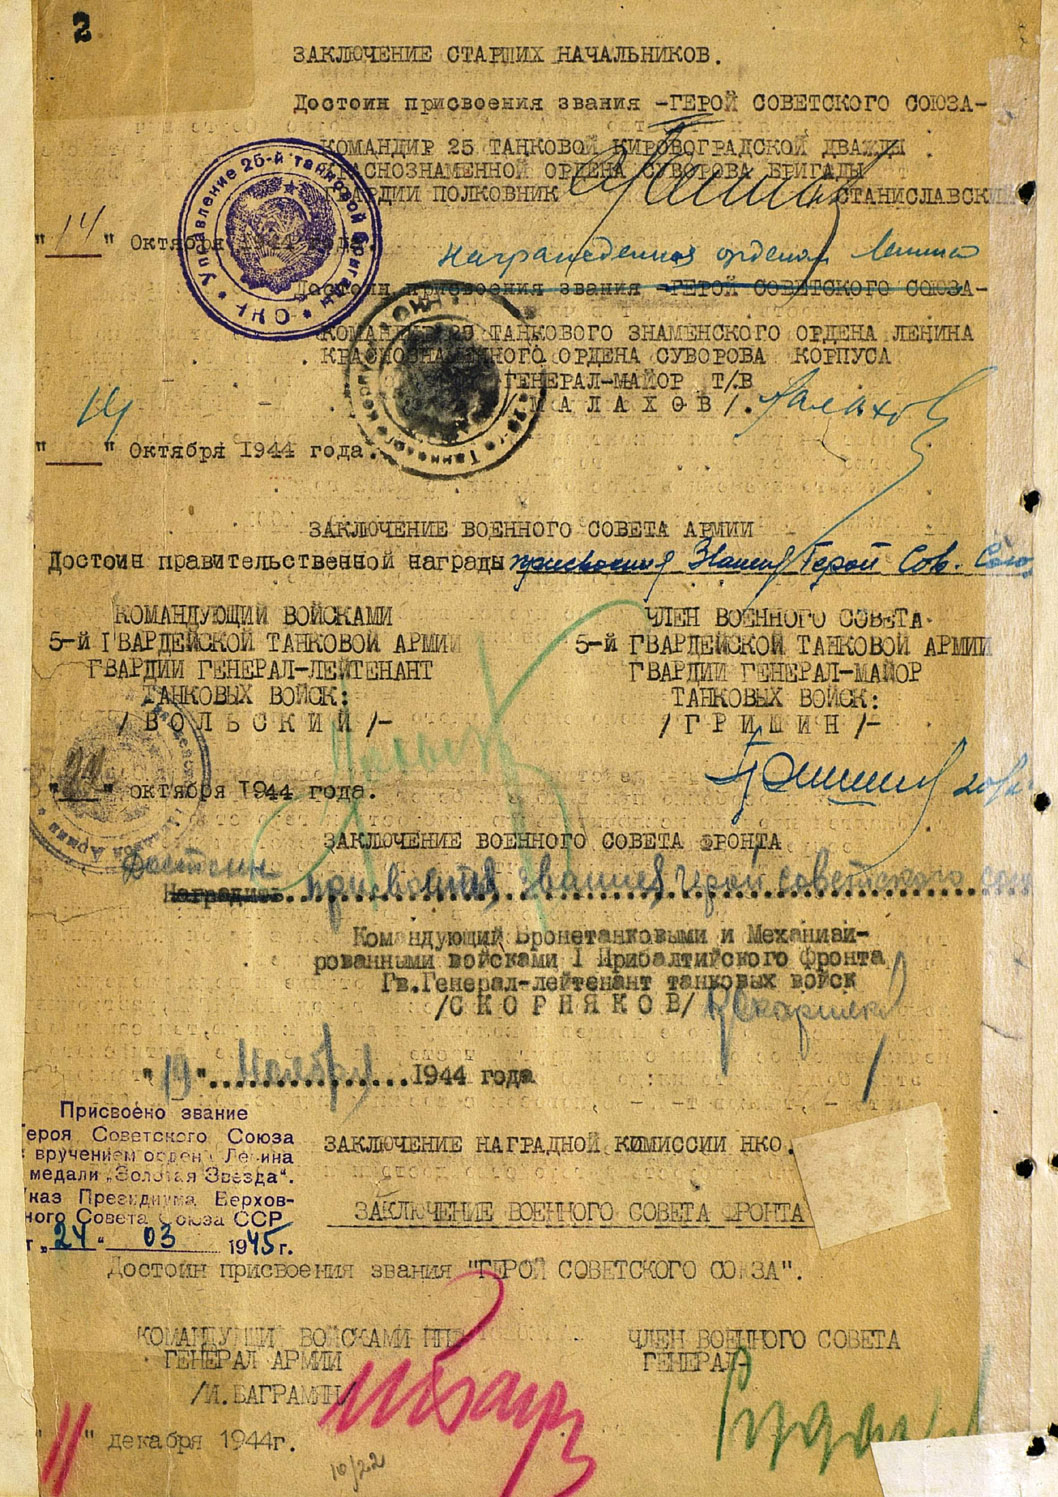 2
ЗАКЛЮЧЕНИЕ СТАРШИХ НАЧАЛЬНИКОВ.
Достоин присвоения звания -ГЕРОЙ СОВЕТСКОГО СОЮЗА-
КОМАНДИР 25 ТАНКОВОЙ КИРОВОГРАДСКОЙ ДВАЖДЫ
КРАСНОЗНАМЕННОЙ ОРДЕНА СУВОРОВА БРИГАДЫ
ГВАРДИИ ПОЛКОВНИК СТАНИСЛАВСКИЙ
Управление 25-й танковой бригады
"14" Октября 1944 года.
награждения орденом Ленина
Достоин присвоения звания -ГЕРОЙ СОВЕТСКОГО СОЮЗА-
КОМАНДИР 29 ТАНКОВОГО ЗНАМЕНСКОГО ОРДЕНА ЛЕНИНА
КРАСНОЗНАМЕННОГО ОРДЕНА СУВОРОВА КОРПУСА
ГЕНЕРАЛ-МАЙОР Т/В
/ М А Л А Х О В /. Малахов
"14" Октября 1944 года.
ЗАКЛЮЧЕНИЕ ВОЕННОГО СОВЕТА АРМИИ
Достоин правительственной награды присвоения Звания Герой Сов. Сою.
КОМАНДУЮЩИЙ ВОЙСКАМИ
5-й ГВАРДЕЙСКОЙ ТАНКОВОЙ АРМИИ
ГВАРДИИ ГЕНЕРАЛ-ЛЕЙТЕНАНТ
ТАНКОВЫХ ВОЙСК:
/ В О Л Ь С К И Й /-
ЧЛЕН ВОЕННОГО СОВЕТА
5-й ГВАРДЕЙСКОЙ ТАНКОВОЙ АРМИИ
ГВАРДИИ ГЕНЕРАЛ-МАЙОР
ТАНКОВЫХ ВОЙСК:
/ Г Р И Ш И Н /-
октября 1944 года.
ЗАКЛЮЧЕНИЕ ВОЕННОГО СОВЕТА ФРОНТА
Достоин
Наградить присвоения звания Герой Советского союз
Командующий Бронетанковыми и Механизи-
рованными войсками I Прибалтийского Фронта
Гв.Генерал-лейтенант танковых войск
/С К О Р Н Я К О В/
"19" Ноября 1944 года
Присвоено звание
Героя Советского Союза
с вручением ордена Ленина
и медали „Золотая Звезда".
Указ Президиума Верхов-
ного Совета Союза ССР
от „24" 03 1945 г.
ЗАКЛЮЧЕНИЕ НАГРАДНОЙ КИМИССИИ НКО.
ЗАКЛЮЧЕНИЕ ВОЕННОГО СОВЕТА ФРОНТА
Достоин присвоения звания "ГЕРОЙ СОВЕТСКОГО СОЮЗА".
КОМАНДУЮЩИЙ ВОЙСКАМИ ППФ
ГЕНЕРАЛ АРМИИ
/И.БАГРАМЯН/
ЧЛЕН ВОЕННОГО СОВЕТА
ГЕНЕРАЛ-
"11" декабря 1944г.
10/22